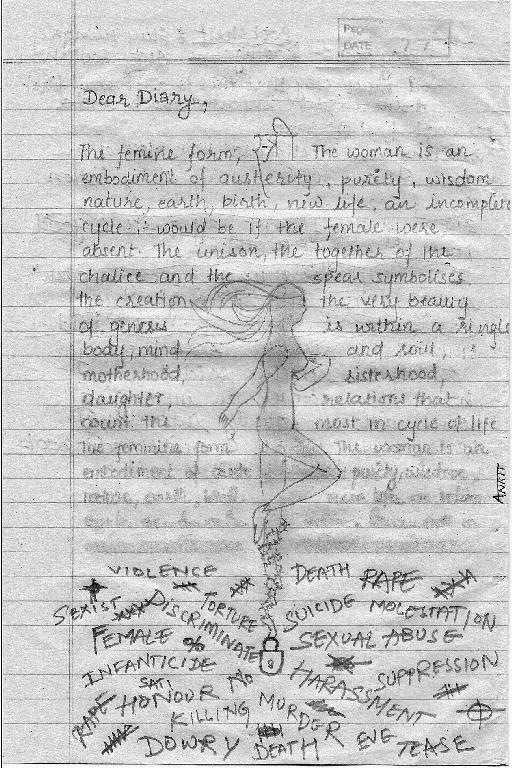 DATE / /
Dear Diary,
The femine form, The woman is an
embodiment of austerity, purity, wisdom
nature, earth, birth, new life, an incomplete
cycle it would be if the female were
absent. The unison, the together of the
chalice and the spear symbolises
the creation the very beauty
of genesis is within a single
body, mind and soul,
motherhood, sisterhood,
daughter, relations that
count the most in cycle of life
The feminine form The woman is an
embodiment of purity, wisdom,
nature, earth,
ANKIT
VIOLENCE DEATH RAPE
SEXIST DISCRIMINATE TORTURE SUICIDE MOLESTATION
FEMALE SEXUAL ABUSE
INFANTICIDE HARASSMENT SUPPRESSION
SATI
RAPE HONOUR NO
KILLING MURDER
DOWRY DEATH EVE TEASE